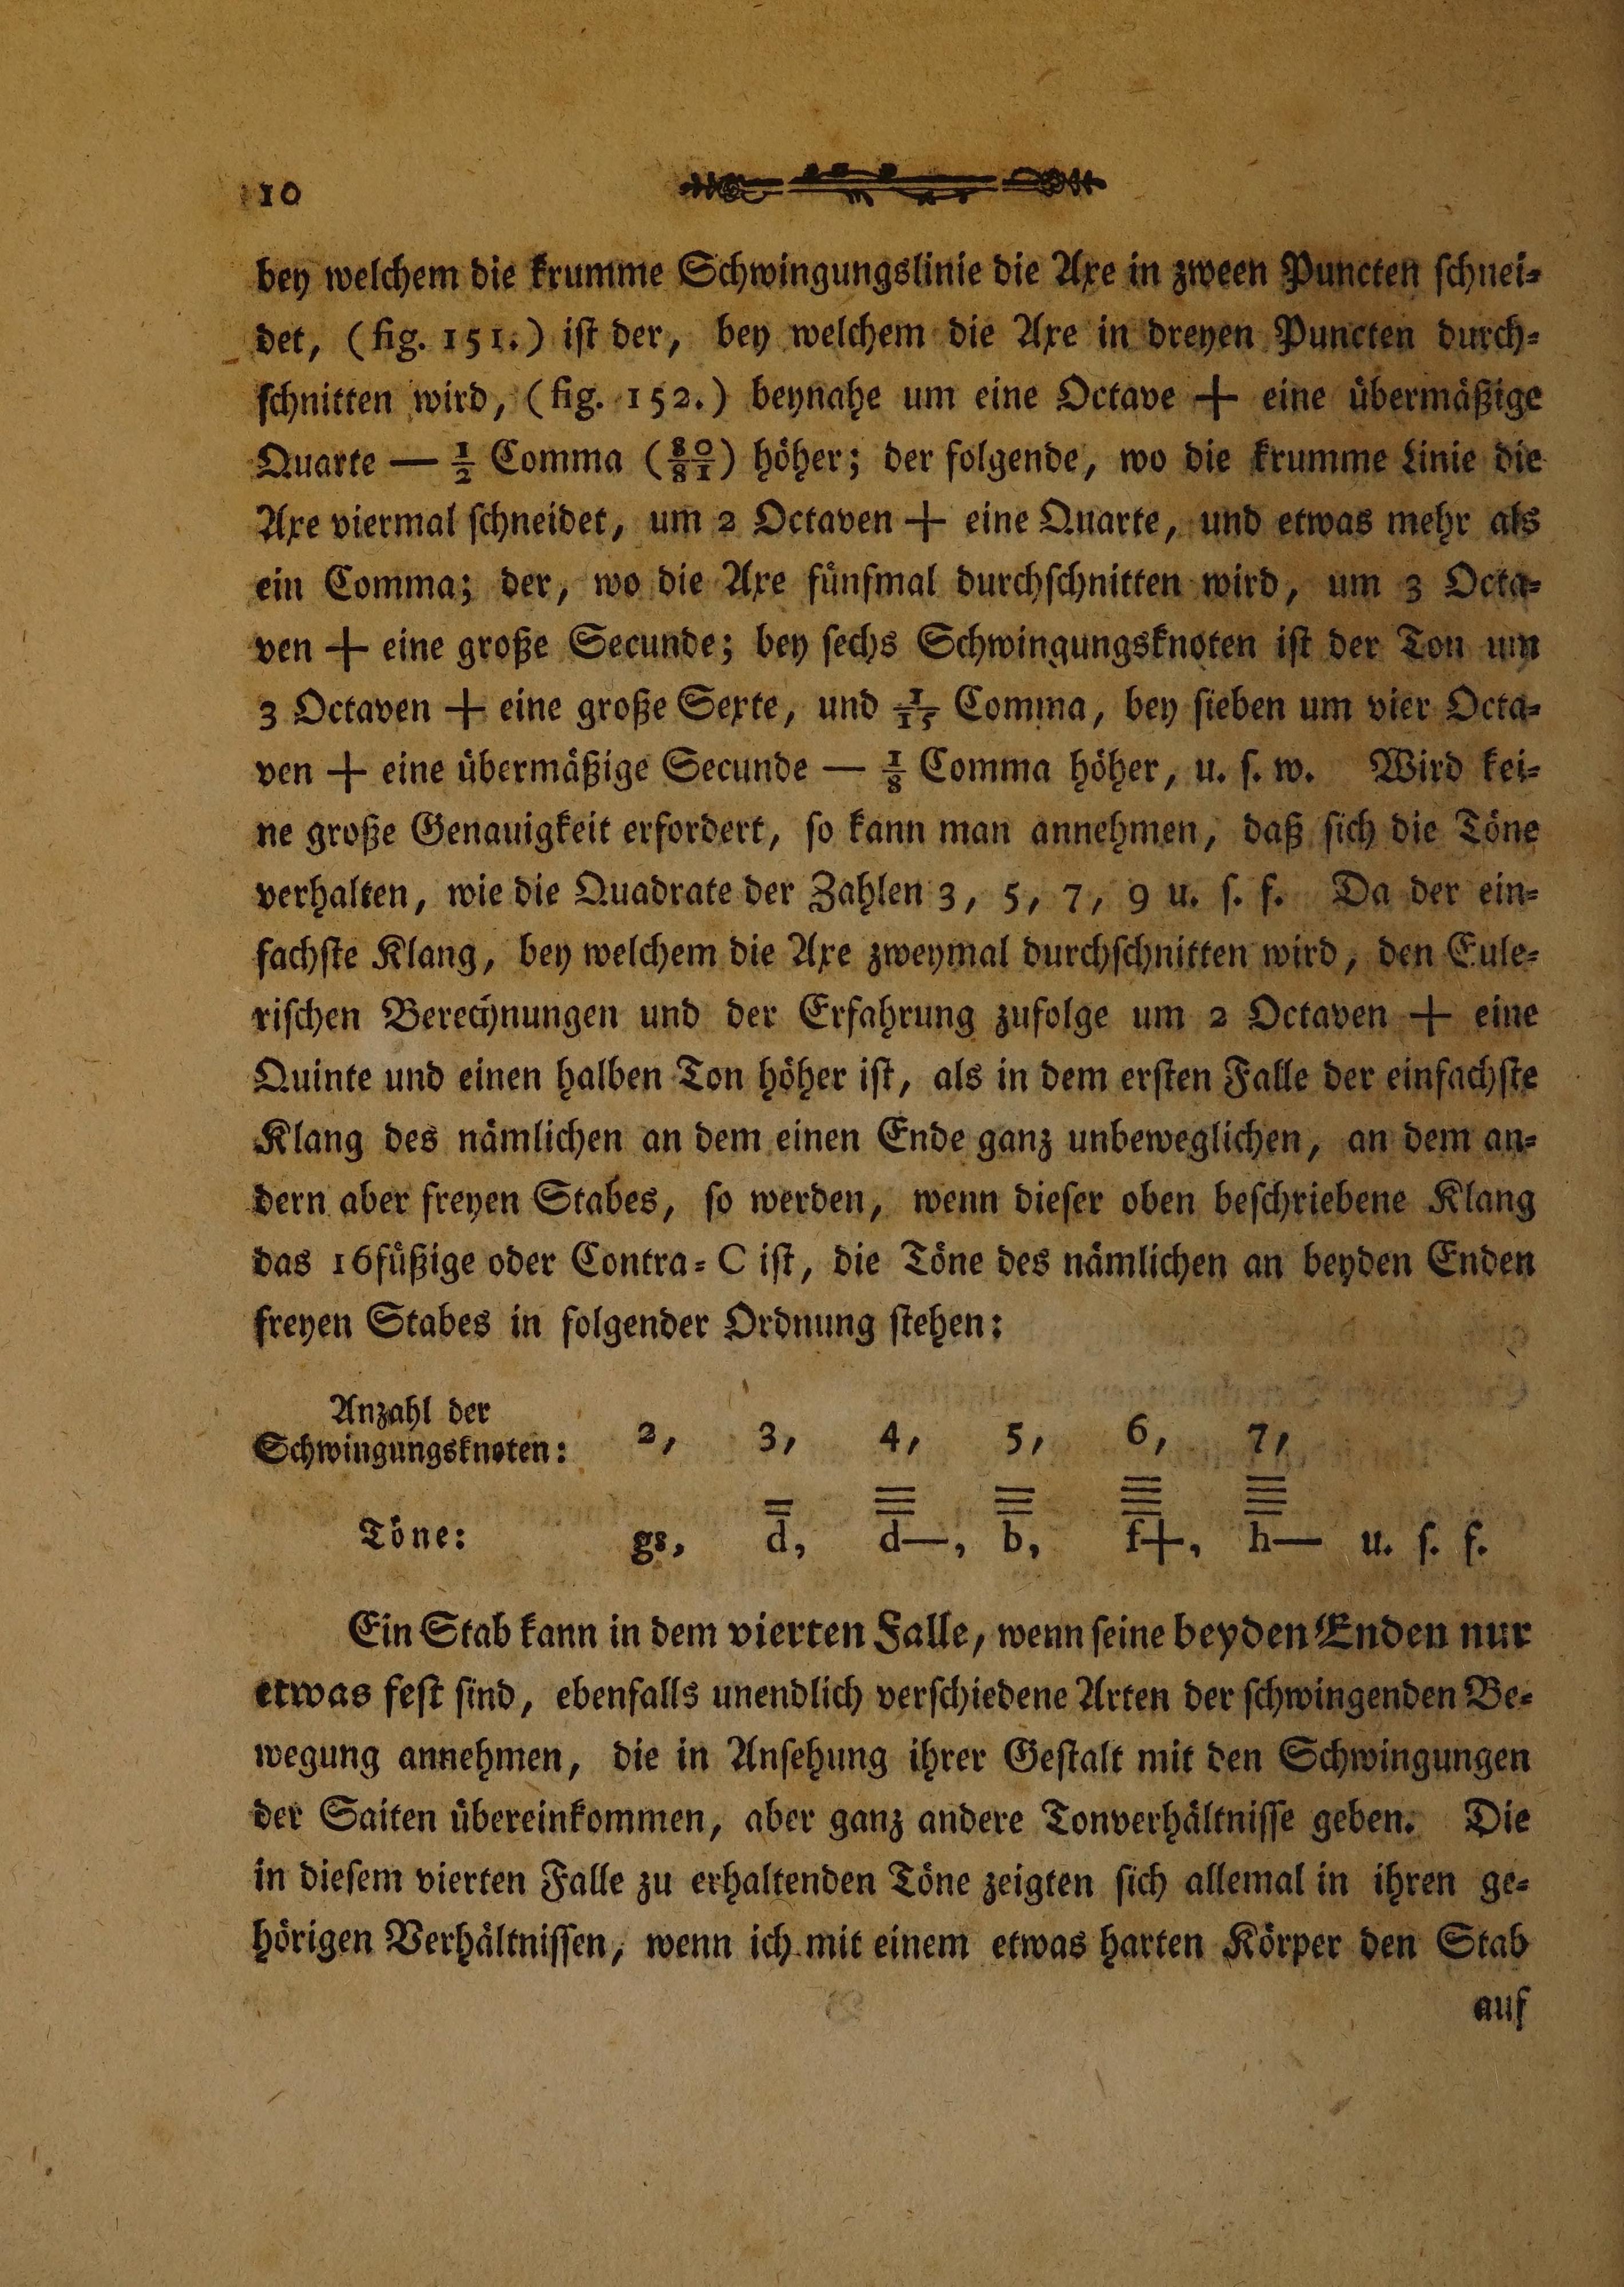 10
bey welchem die krumme Schwingungslinie die Axe in zween Puncten schnei-
det, (fig. 151.) ist der, bey welchem die Axe in dreyen Puncten durch-
schnitten wird, (fig. 152.) beynahe um eine Octave + eine übermäßige
Quarte — 1/2 Comma (80/81) höher; der folgende, wo die krumme Linie die
Axe viermal schneidet, um 2 Octaven + eine Quarte, und etwas mehr als
ein Comma; der, wo die Axe fünfmal durchschnitten wird, um 3 Octa-
ven + eine große Secunde; bey sechs Schwingungsknoten ist der Ton um
3 Octaven + eine große Sexte, und 1/15 Comma, bey sieben um vier Octa-
ven + eine übermäßige Secunde — 1/8 Comma höher, u. s. w. Wird kei-
ne große Genauigkeit erfordert, so kann man annehmen, daß sich die Töne
verhalten, wie die Quadrate der Zahlen 3, 5, 7, 9 u. s. f. Da der ein-
fachste Klang, bey welchem die Axe zweymal durchschnitten wird, den Eule-
rischen Berechnungen und der Erfahrung zufolge um 2 Octaven + eine
Quinte und einen halben Ton höher ist, als in dem ersten Falle der einfachste
Klang des nämlichen an dem einen Ende ganz unbeweglichen, an dem an-
dern aber freyen Stabes, so werden, wenn dieser oben beschriebene Klang
das 16füßige oder Contra-C ist, die Töne des nämlichen an beyden Enden
freyen Stabes in folgender Ordnung stehen:
Anzahl der
Schwingungsknoten: 2, 3, 4, 5, 6, 7,
Töne: gs, d, d—, b, f+, h— u. s. f.
Ein Stab kann in dem vierten Falle, wenn seine beyden Enden nur
etwas fest sind, ebenfalls unendlich verschiedene Arten der schwingenden Be-
wegung annehmen, die in Ansehung ihrer Gestalt mit den Schwingungen
der Saiten übereinkommen, aber ganz andere Tonverhältnisse geben. Die
in diesem vierten Falle zu erhaltenden Töne zeigten sich allemal in ihren ge-
hörigen Verhältnissen, wenn ich mit einem etwas harten Körper den Stab
auf